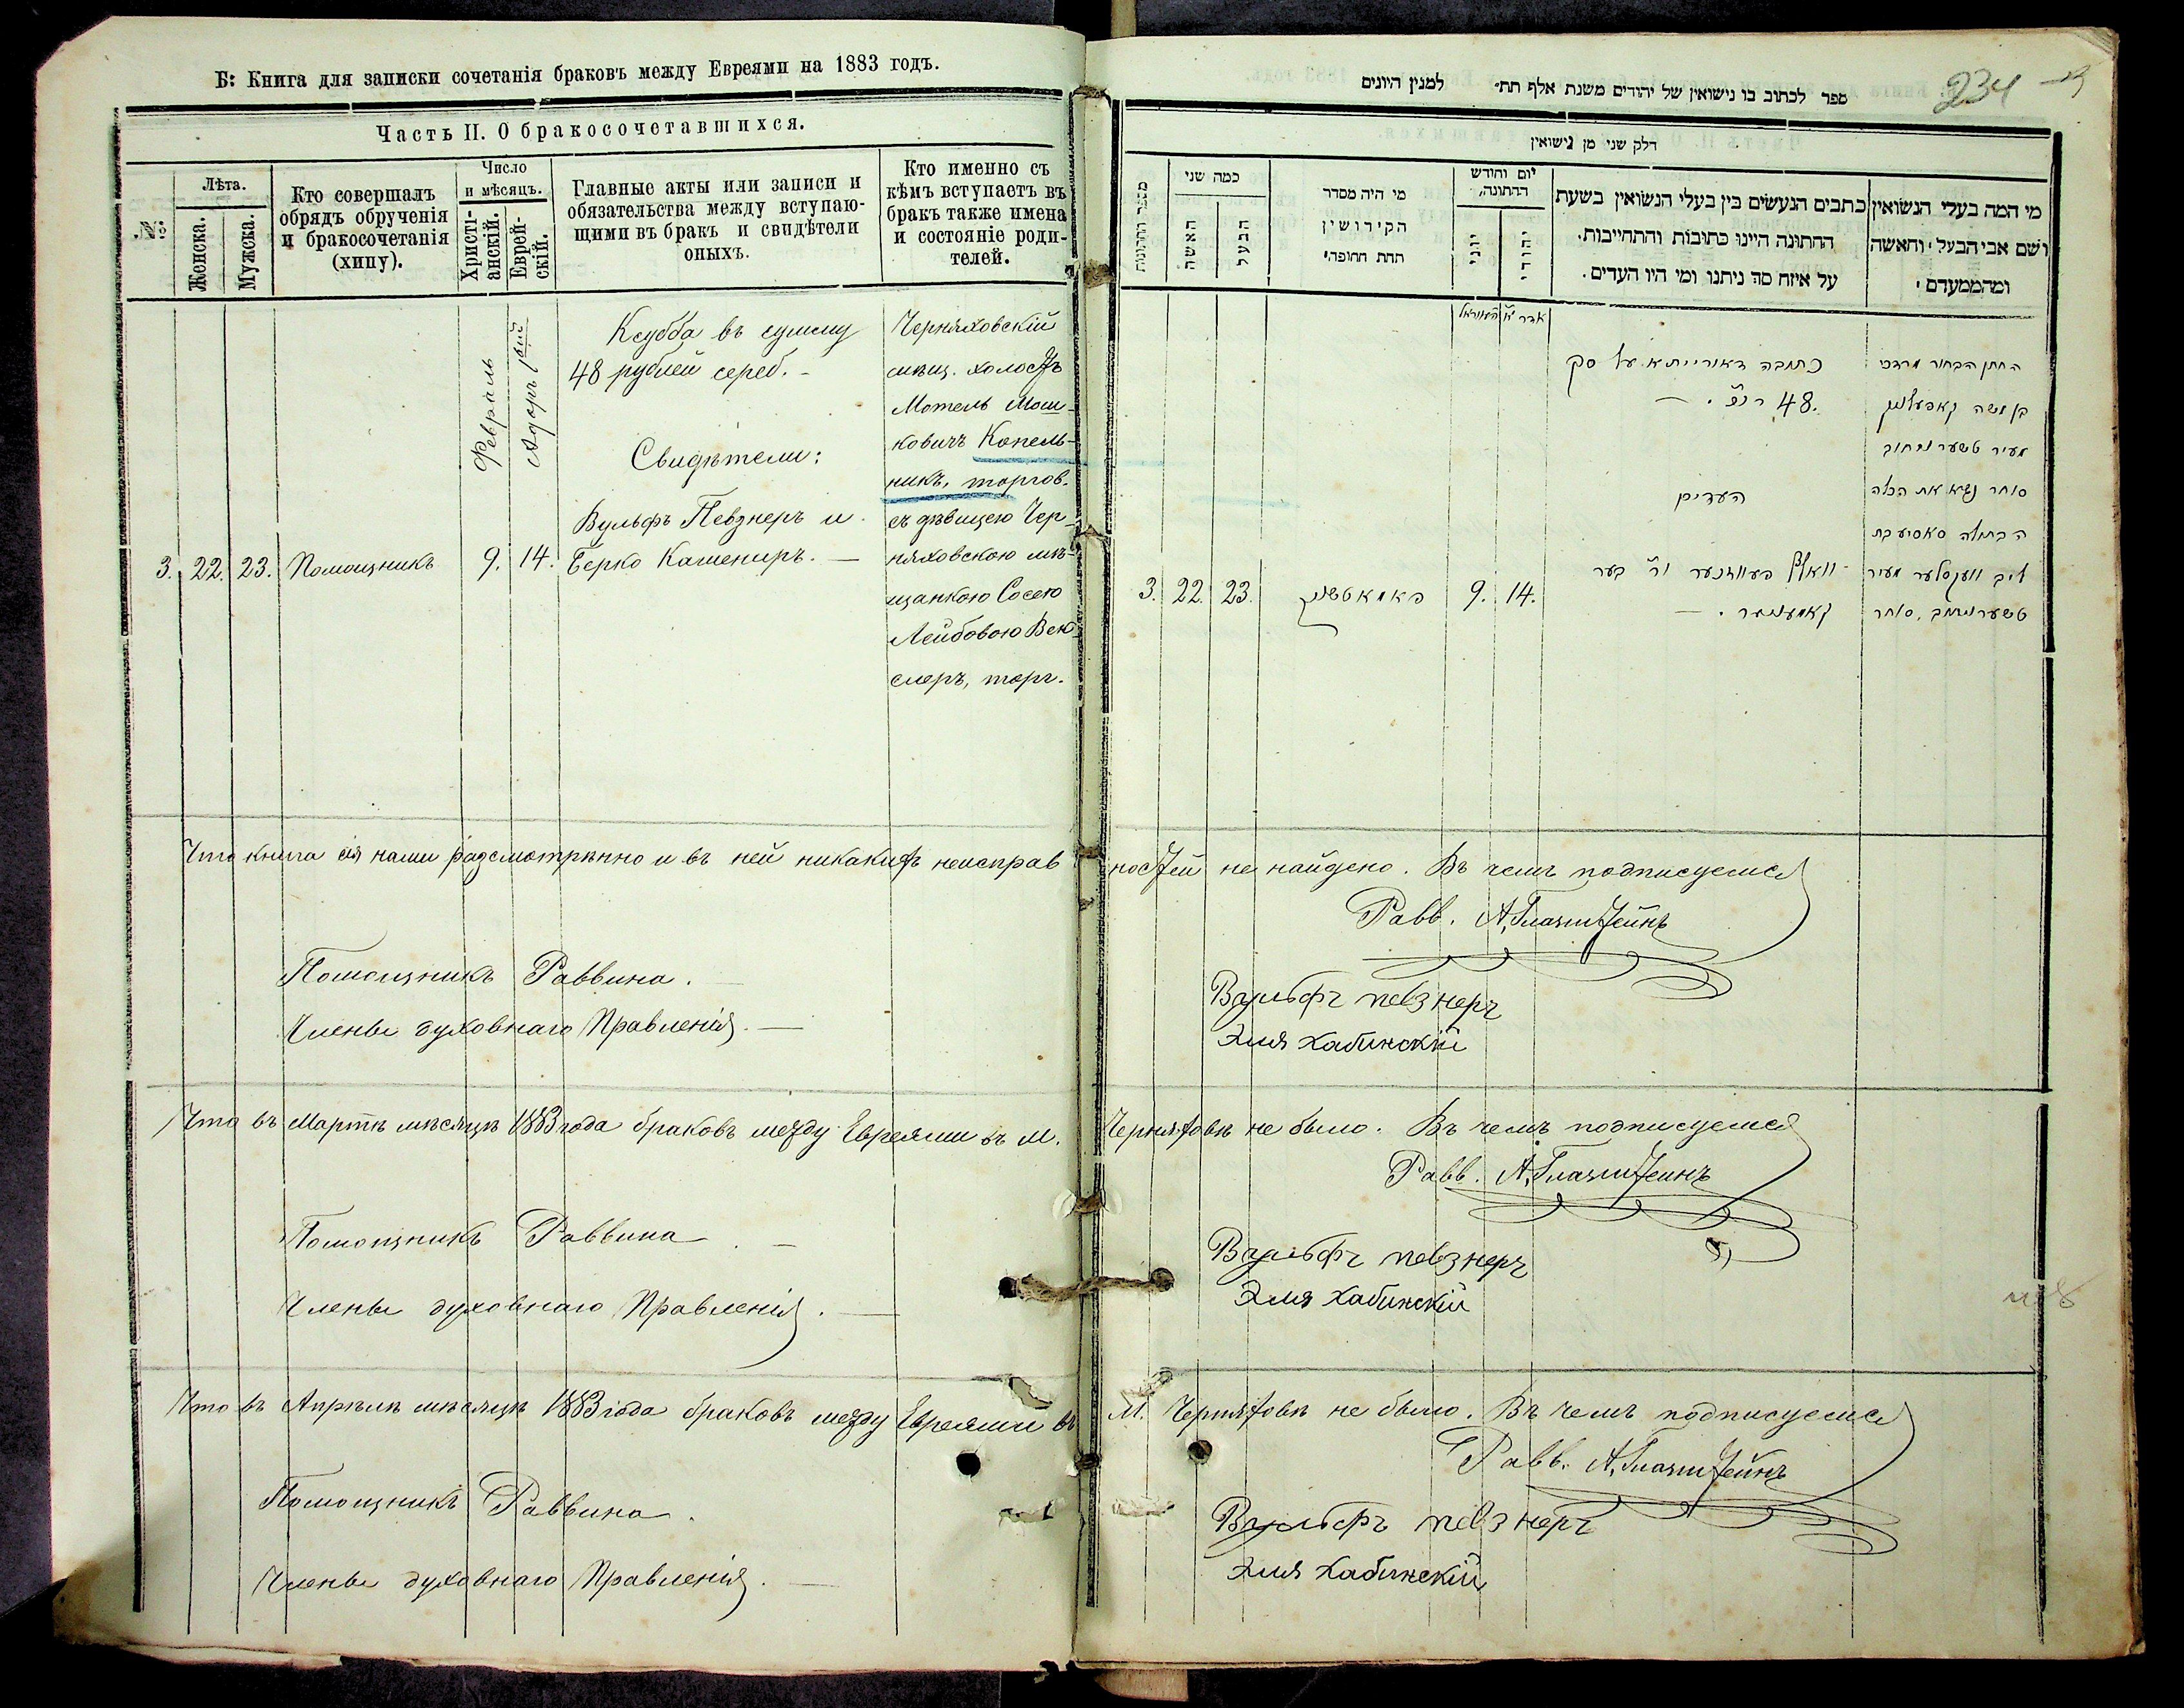 Б: Книга для записки сочетанія браковъ между Евреями на 1883 годъ.
Часть II. О бракосочетавшихся.
№
Лѣта.
Женска.
Мужска.
Кто совершалъ
обрядъ обрученія
и бракосочетанія
(хипу).
Число
и мѣсяцъ.
Христі-
анскій.
Еврей-
скій.
Главные акты или записи и
обязательства между вступаю-
щими въ бракъ и свидѣтели
оныхъ.
Кто именно съ
кѣмъ вступаетъ въ
бракъ также имена
и состояніе роди-
телей.
Февраль
Адаръ
Ксубба въ сумму
48 рублей сереб. -
Свидѣтели:
Вульфъ Певзнеръ и
3. 22. 23. Помощникъ 9. 14. Берко Кашениръ. —
Черняховскій
мѣщ. холостъ
Мотель Мош-
ковичъ Копель-
никъ, торгов.
съ дѣвицею Чер-
няховскою мѣ-
щанкою Сосею
Лейбовою Век-
слеръ, торг.
Что книга сія нами разсмотрѣнно и въ ней никакихъ неисправ
Помощникъ Раввина.
Члены духовнаго Правленія. —
Что въ Мартѣ мѣсяцѣ 1883 года браковъ между Евреями въ М.
Помощникъ Раввина. —
Члены духовнаго Правленія. —
Что въ Апрѣлѣ мѣсяцѣ 1883 года браковъ между Евреями въ
Помощникъ Раввина.
Члены духовнаго Правленія. —
234
ספר לכתוב בו נישואין של יהודים משנת אלף תת״ למנין היונים
דלק שני מן נישואין
מספר החתונות
כמה שני
האשה
הבעל
מי היה מסדר
הקידושין
תחת החופה׳
יום וחודש
החתונה,
יוני
יהודי
כתבים הנעשים בין בעלי הנשואין בשעת
החתונה היינו כתובות והתחייבות.
על איזה סך ניתנו ומי היו העדים.
מי המה בעלי הנשואין
ושם אבי הבעל והאשה
ומהממעדם׳
פעווראל
אדר א׳
כתובה דאורייתא על סק
48. —
העדים
וואלף פעווזנער ור׳ בער
3. 22. 23. 9. 14.
החתן הבחור מרדכי
בן משה קאפעלניק
מעיר טשערניחוב
סוחר נשא את הכלה
הבתולה סאסיע בת
ליב וועקסלער מעיר
טשערניחוב, סוחר
ностей не найдено. Въ чемъ подписуемся
Равв. А. Глазштейнъ
Вульфъ певзнеръ
Эля Хабинскій
Черняховѣ не было. Въ чемъ подписуемся
Равв. А. Глазштейнъ
Вульфъ певзнеръ
Эля Хабинскій
М. Черняховѣ не было. Въ чемъ подписуемся
Равв. А. Глазштейнъ
Вульфъ певзнеръ
Эля Хабинскій